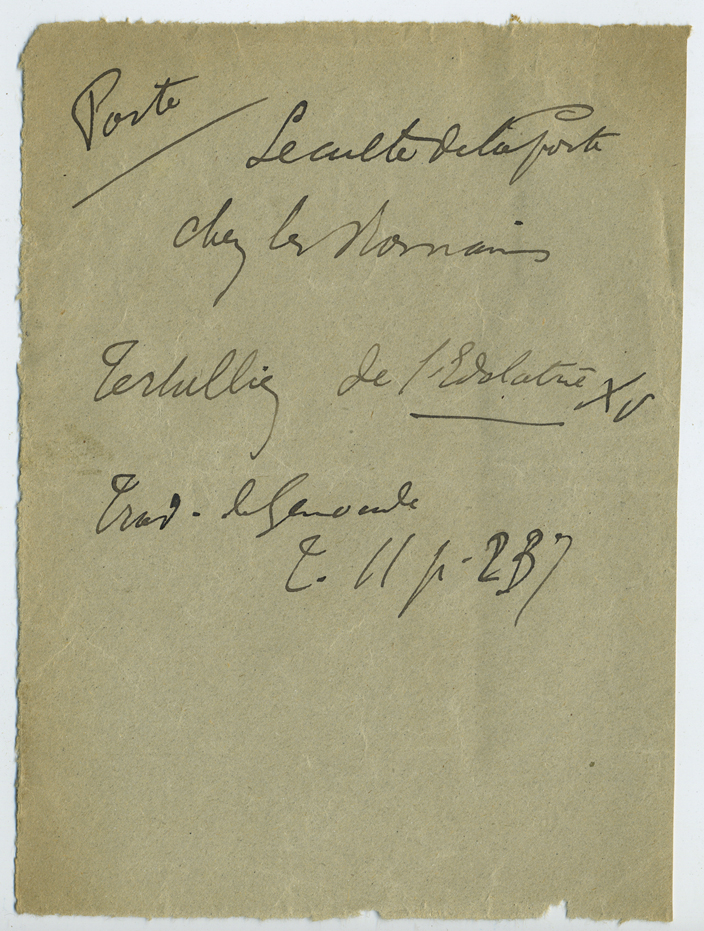 Porte
Le culte de la porte
chez les Romains
Tertullien de l'Idolatrie XV
Trad. de Genoude
T. II p. 237